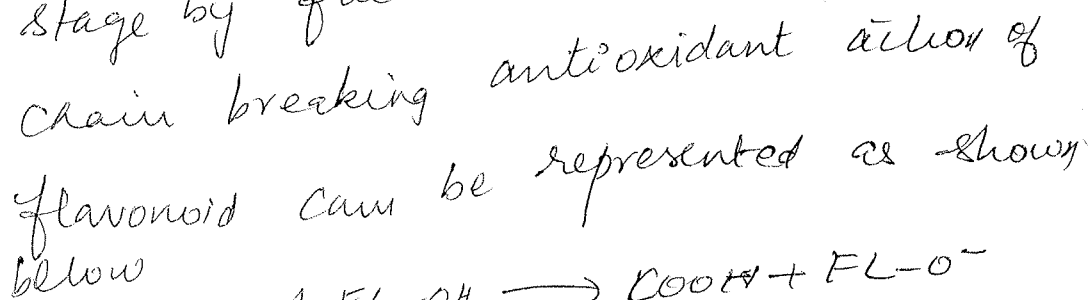 stage by
chain breaking antioxidant action of
flavonoid can be represented as shown
below
FL-OH → ROOH + FL-O⁻